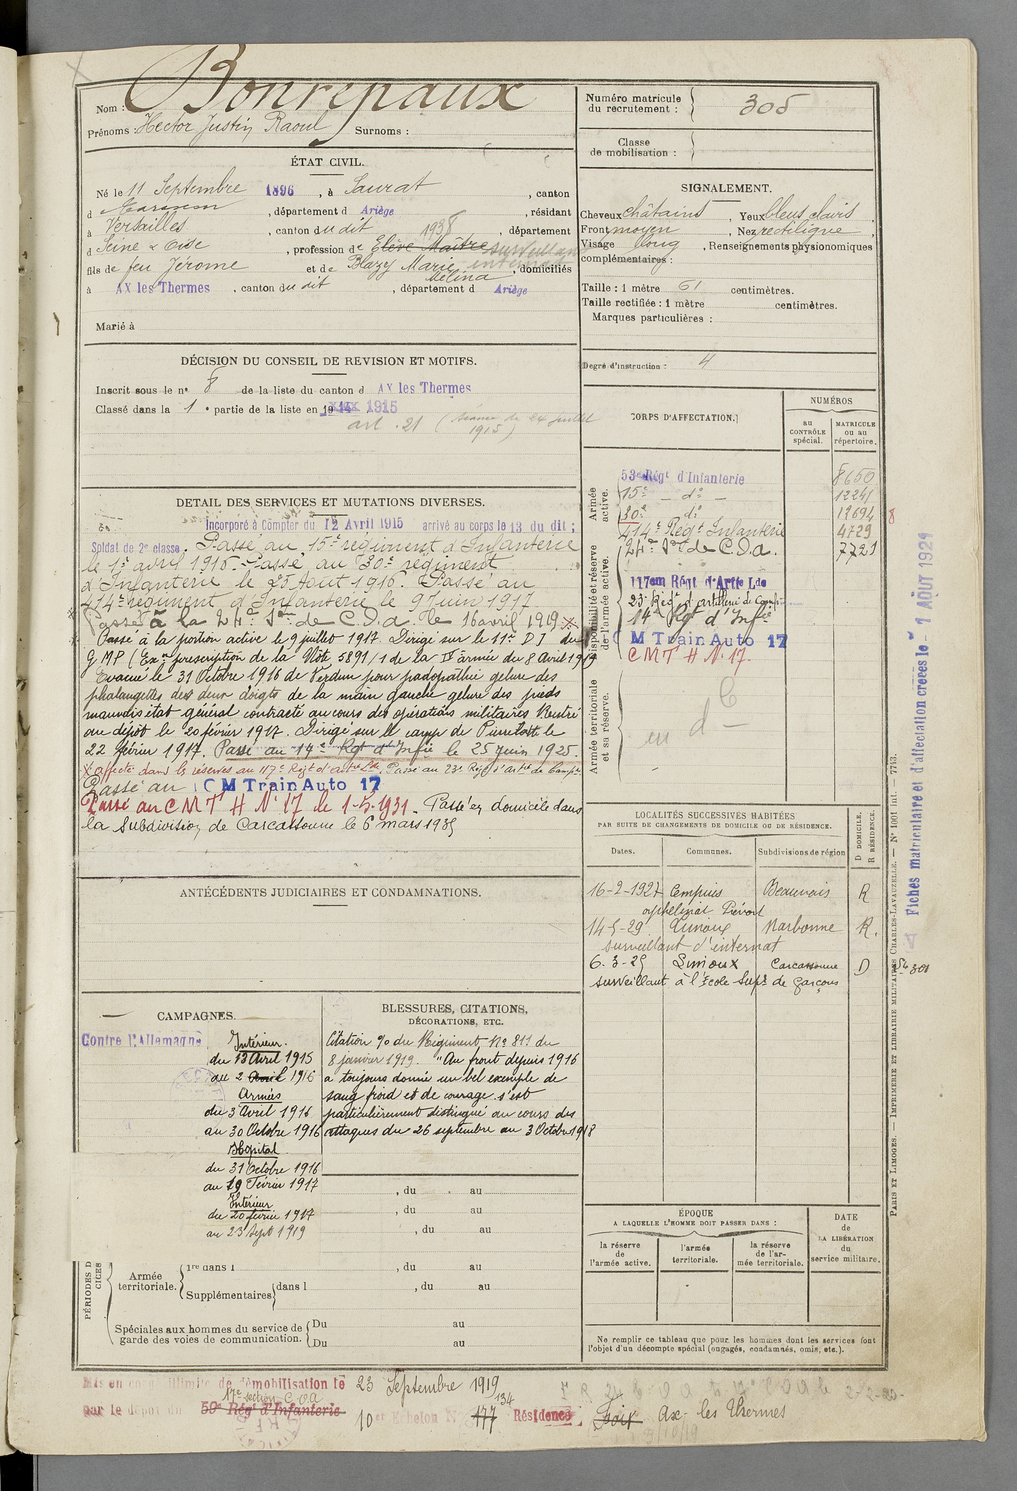 Nom : Bonrepaux
Prénoms : Hector Justin Raoul Surnoms :
ÉTAT CIVIL.
Né le 11 Septembre 1896, à Saurat, canton
d, département d Ariège, résidant
à Versailles, canton du dit 1935, département
d Seine & Oise, profession de Elève Maître surveillant internat
fils de feu Jérome et de Blazy Marie Mélina, domiciliés
à AX les Thermes, canton du dit, département d Ariège
Marié à
DÉCISION DU CONSEIL DE REVISION ET MOTIFS.
Inscrit sous le n° 8 de la liste du canton d AX les Thermes
Classé dans la 1e partie de la liste en 1915
art. 21 (séance du 24 juillet
1915)
DETAIL DES SERVICES ET MUTATIONS DIVERSES.
Incorporé à Compter du 12 Avril 1915 arrivé au corps le 13 du dit ;
Soldat de 2e classe. Passé au 15e régiment d'Infanterie
le 1er avril 1916. Passé au 30e régiment
d'Infanterie le 25 Aout 1916. Passé au
414e régiment d'Infanterie le 9 Juin 1917
Passé à la 24e Son de C.O.a. le 16 avril 1919 X
Passé à la position active le 9 juillet 1917. Dirigé sur le 11e D I du
G M P (Exon prescription de la Note 5891/1 de la IVe armée du 8 Avril 1919
Evacué le 31 Octobre 1916 de Verdun pour padopathie gelure des
phalangettes des deux doigts de la main gauche gelure des pieds
mauvais état général contracté au cours des opérations militaires Rentré
au dépôt le 20 février 1917. Dirigé sur le camp de
22 février 1917. Passé au 14e Rgt d'Infie le 25 juin 1925.
X affecté dans la réserves au 117e Régt d'artie Lde. Passé au 23e Régt d'artie de Campne
Passé au C M Train Auto 17
Passé au C M T H N° 17 le 1-5-1931. Passé en domicile dans
la Subdivision de Carcassonne le 6 mars 1935
ANTÉCÉDENTS JUDICIAIRES ET CONDAMNATIONS.
CAMPAGNES.
Contre l'Allemagne
Intérieur.
du 13 Avril 1915
au 2 Avril 1916
Armées
du 3 Avril 1916
au 30 Octobre 1916
Hopital
du 31 Octobre 1916
au 19 Février 1917
Intérieur
du 20 février 1917
au 23 Sept 1919
BLESSURES, CITATIONS,
DÉCORATIONS, ETC.
Citation % du Régiment No 811 du
8 janvier 1919. "Au front depuis 1916
a toujours donné un bel exemple de
sang froid et de courage s'est
particulièrement distingué au cours des
attaques du 26 septembre au 3 Octobre 1918
, du au
, du au
, du au
PÉRIODES D
CICES
Armée territoriale. 1re dans l , du au
Supplémentaires dans l , du au
Spéciales aux hommes du service de garde des voies de communication. Du au
Du au
Numéro matricule du recrutement : 305
Classe de mobilisation :
SIGNALEMENT.
Cheveux châtains, Yeux bleus clairs,
Front moyen, Nez rectiligne,
Visage long, Renseignements physionomiques
complémentaires :
Taille : 1 mètre 61 centimètres.
Taille rectifiée : 1 mètre centimètres.
Marques particulières :
Degré d'instruction : 4
CORPS D'AFFECTATION.
NUMÉROS
au CONTRÔLE spécial.
MATRICULE ou au répertoire.
Armée active.
53e Régt d'Infanterie 8650
15e - do - 12241
30e do 12694
414e Régt Infanterie 4729
24e Son de C.O.a. 7721
Disponibilité et réserve de l'armée active.
117em Régt d'Artie Lde
23e Régt d'artillerie de Campne
14e Rgt d'Infie
C M Train Auto 17
C M T H N° 17.
Armée territoriale et sa réserve.
LOCALITÉS SUCCESSIVES HABITÉES
PAR SUITE DE CHANGEMENTS DE DOMICILE OU DE RÉSIDENCE.
D DOMICILE.
R RÉSIDENCE.
Dates. Communes. Subdivisions de région
16-2-1927 Cempuis Beauvais R
orphelinat Prévost
14-5-29 Limoux Narbonne R.
surveillant d'internat
6-3-35 Limoux Carcassonne D
surveillant à l'École Supre de garçons
ÉPOQUE
A LAQUELLE L'HOMME DOIT PASSER DANS :
la réserve de l'armée active.
l'armée territoriale.
la réserve de l'armée territoriale.
DATE de LA LIBÉRATION du service militaire.
Ne remplir ce tableau que pour les hommes dont les services font
l'objet d'un décompte spécial (engagés, condamnés, omis, etc.).
Fiches matriculaire et d'affectation créées le 1 AOUT 1921
PARIS ET LIMOGES. — IMPRIMERIE ET LIBRAIRIE MILITAIRES CHARLES-LAVAUZELLE. — N° 1001 Int. — 7743.
Mis en congé illimité de démobilisation le 23 Septembre 1919
17e section C.O.A 134
par le dépôt du 59e Régt d'Infanterie 10e Echelon N° 177 Résidence Foix Ax-les Thermes